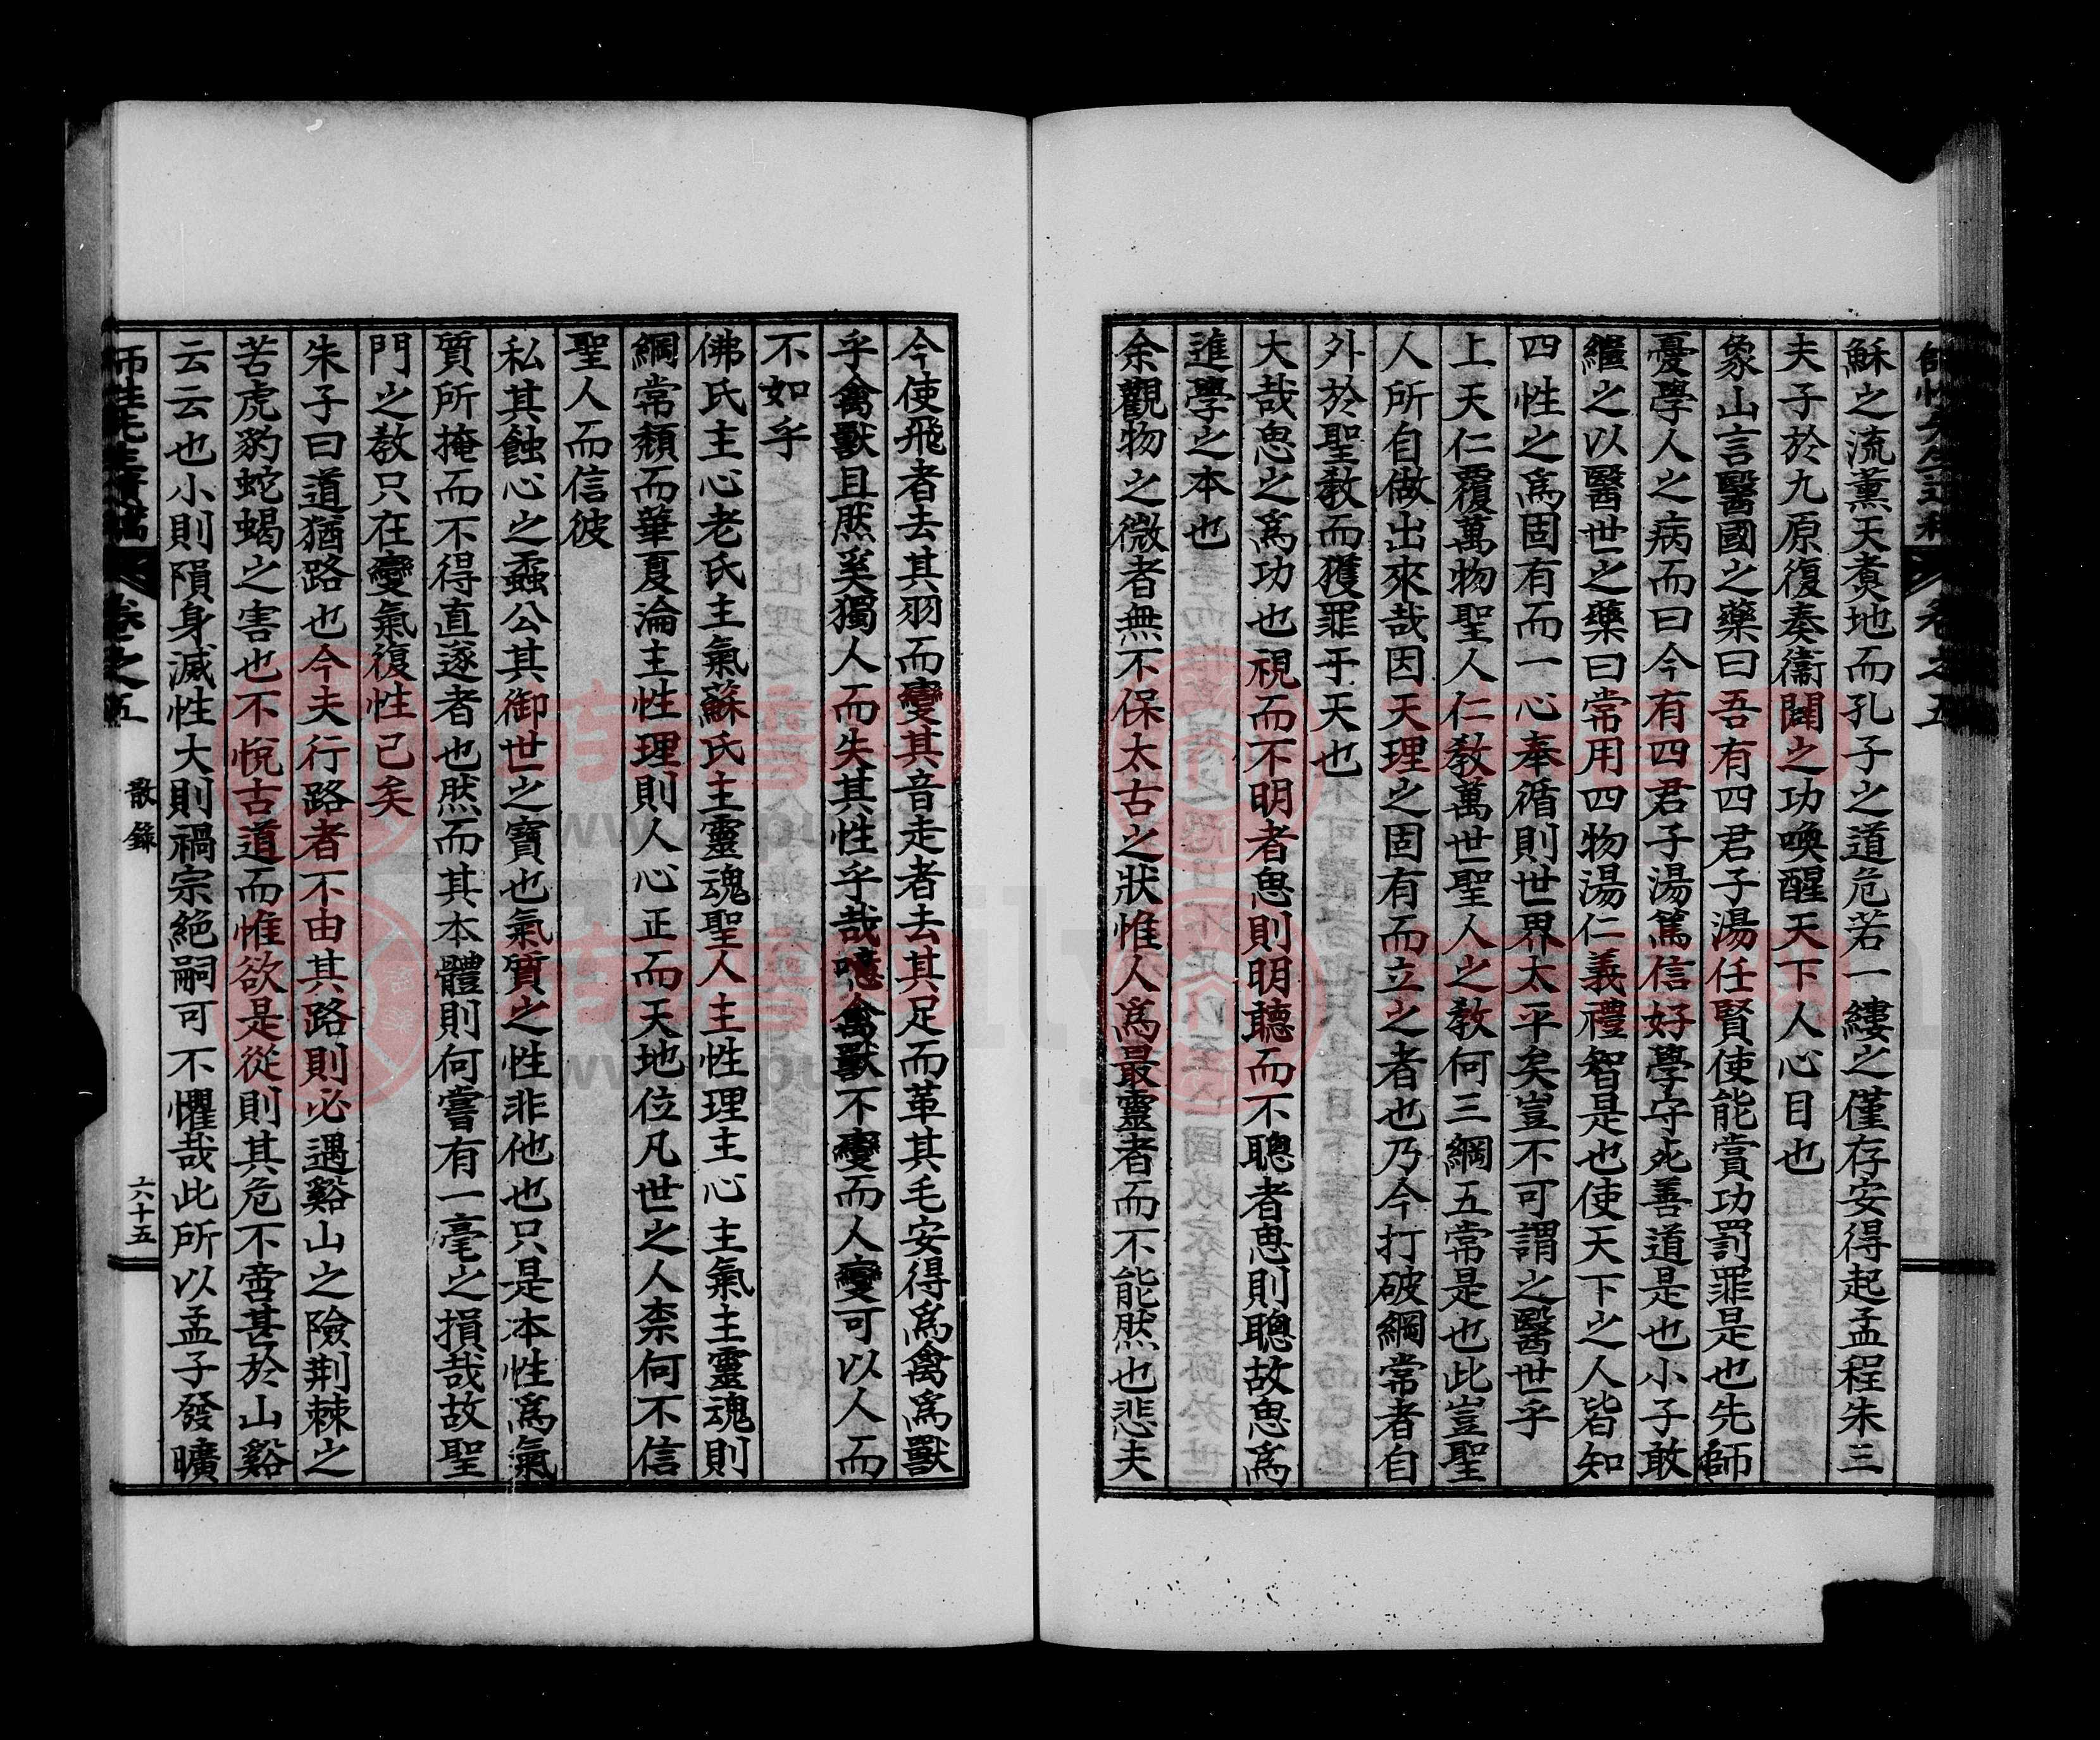 穌之流薰天煑地而孔子之道危若一縷之僅存安得起孟程朱三
夫子於九原復奏衞闢之功喚醒天下人心目也
象山言醫國之藥曰吾有四君子湯任賢使能賞功罰罪是也先師
憂學人之病而曰今有四君子湯篤信好學守死善道是也小子敢
繼之以醫世之藥曰常用四物湯仁義禮智是也使天下之人皆知
四性之爲固有而一心奉循則世界太平矣豈不可謂之醫世乎
上天仁覆萬物聖人仁敎萬世聖人之敎何三綱五常是也此豈聖
人所自做出來哉因天理之固有而立之者也乃今打破綱常者自
外於聖敎而獲罪于天也
大哉思之爲功也視而不明者思則明聽而不聰者思則聰故思爲
進學之本也
余觀物之微者無不保太古之狀惟人爲最靈者而不能然也悲夫
今使飛者去其羽而變其音走者去其足而革其毛安得爲禽爲獸
乎禽獸且然奚獨人而失其性乎哉噫禽獸不變而人變可以人而
不如乎
佛氏主心老氏主氣蘇氏主靈魂聖人主性理主心主氣主靈魂則
綱常頹而華夏淪主性理則人心正而天地位凡世之人柰何不信
聖人而信彼
私其蝕心之蟊公其御世之寶也氣質之性非他也只是本性爲氣
質所掩而不得直遂者也然而其本體則何嘗有一毫之損哉故聖
門之敎只在變氣復性已矣
朱子曰道猶路也今夫行路者不由其路則必遇谿山之險荆棘之
苦虎豹蛇蝎之害也不悅古道而惟欲是從則其危不啻甚於山谿
云云也小則隕身滅性大則禍宗絶嗣可不懼哉此所以孟子發曠
卷之五
散錄
六十五